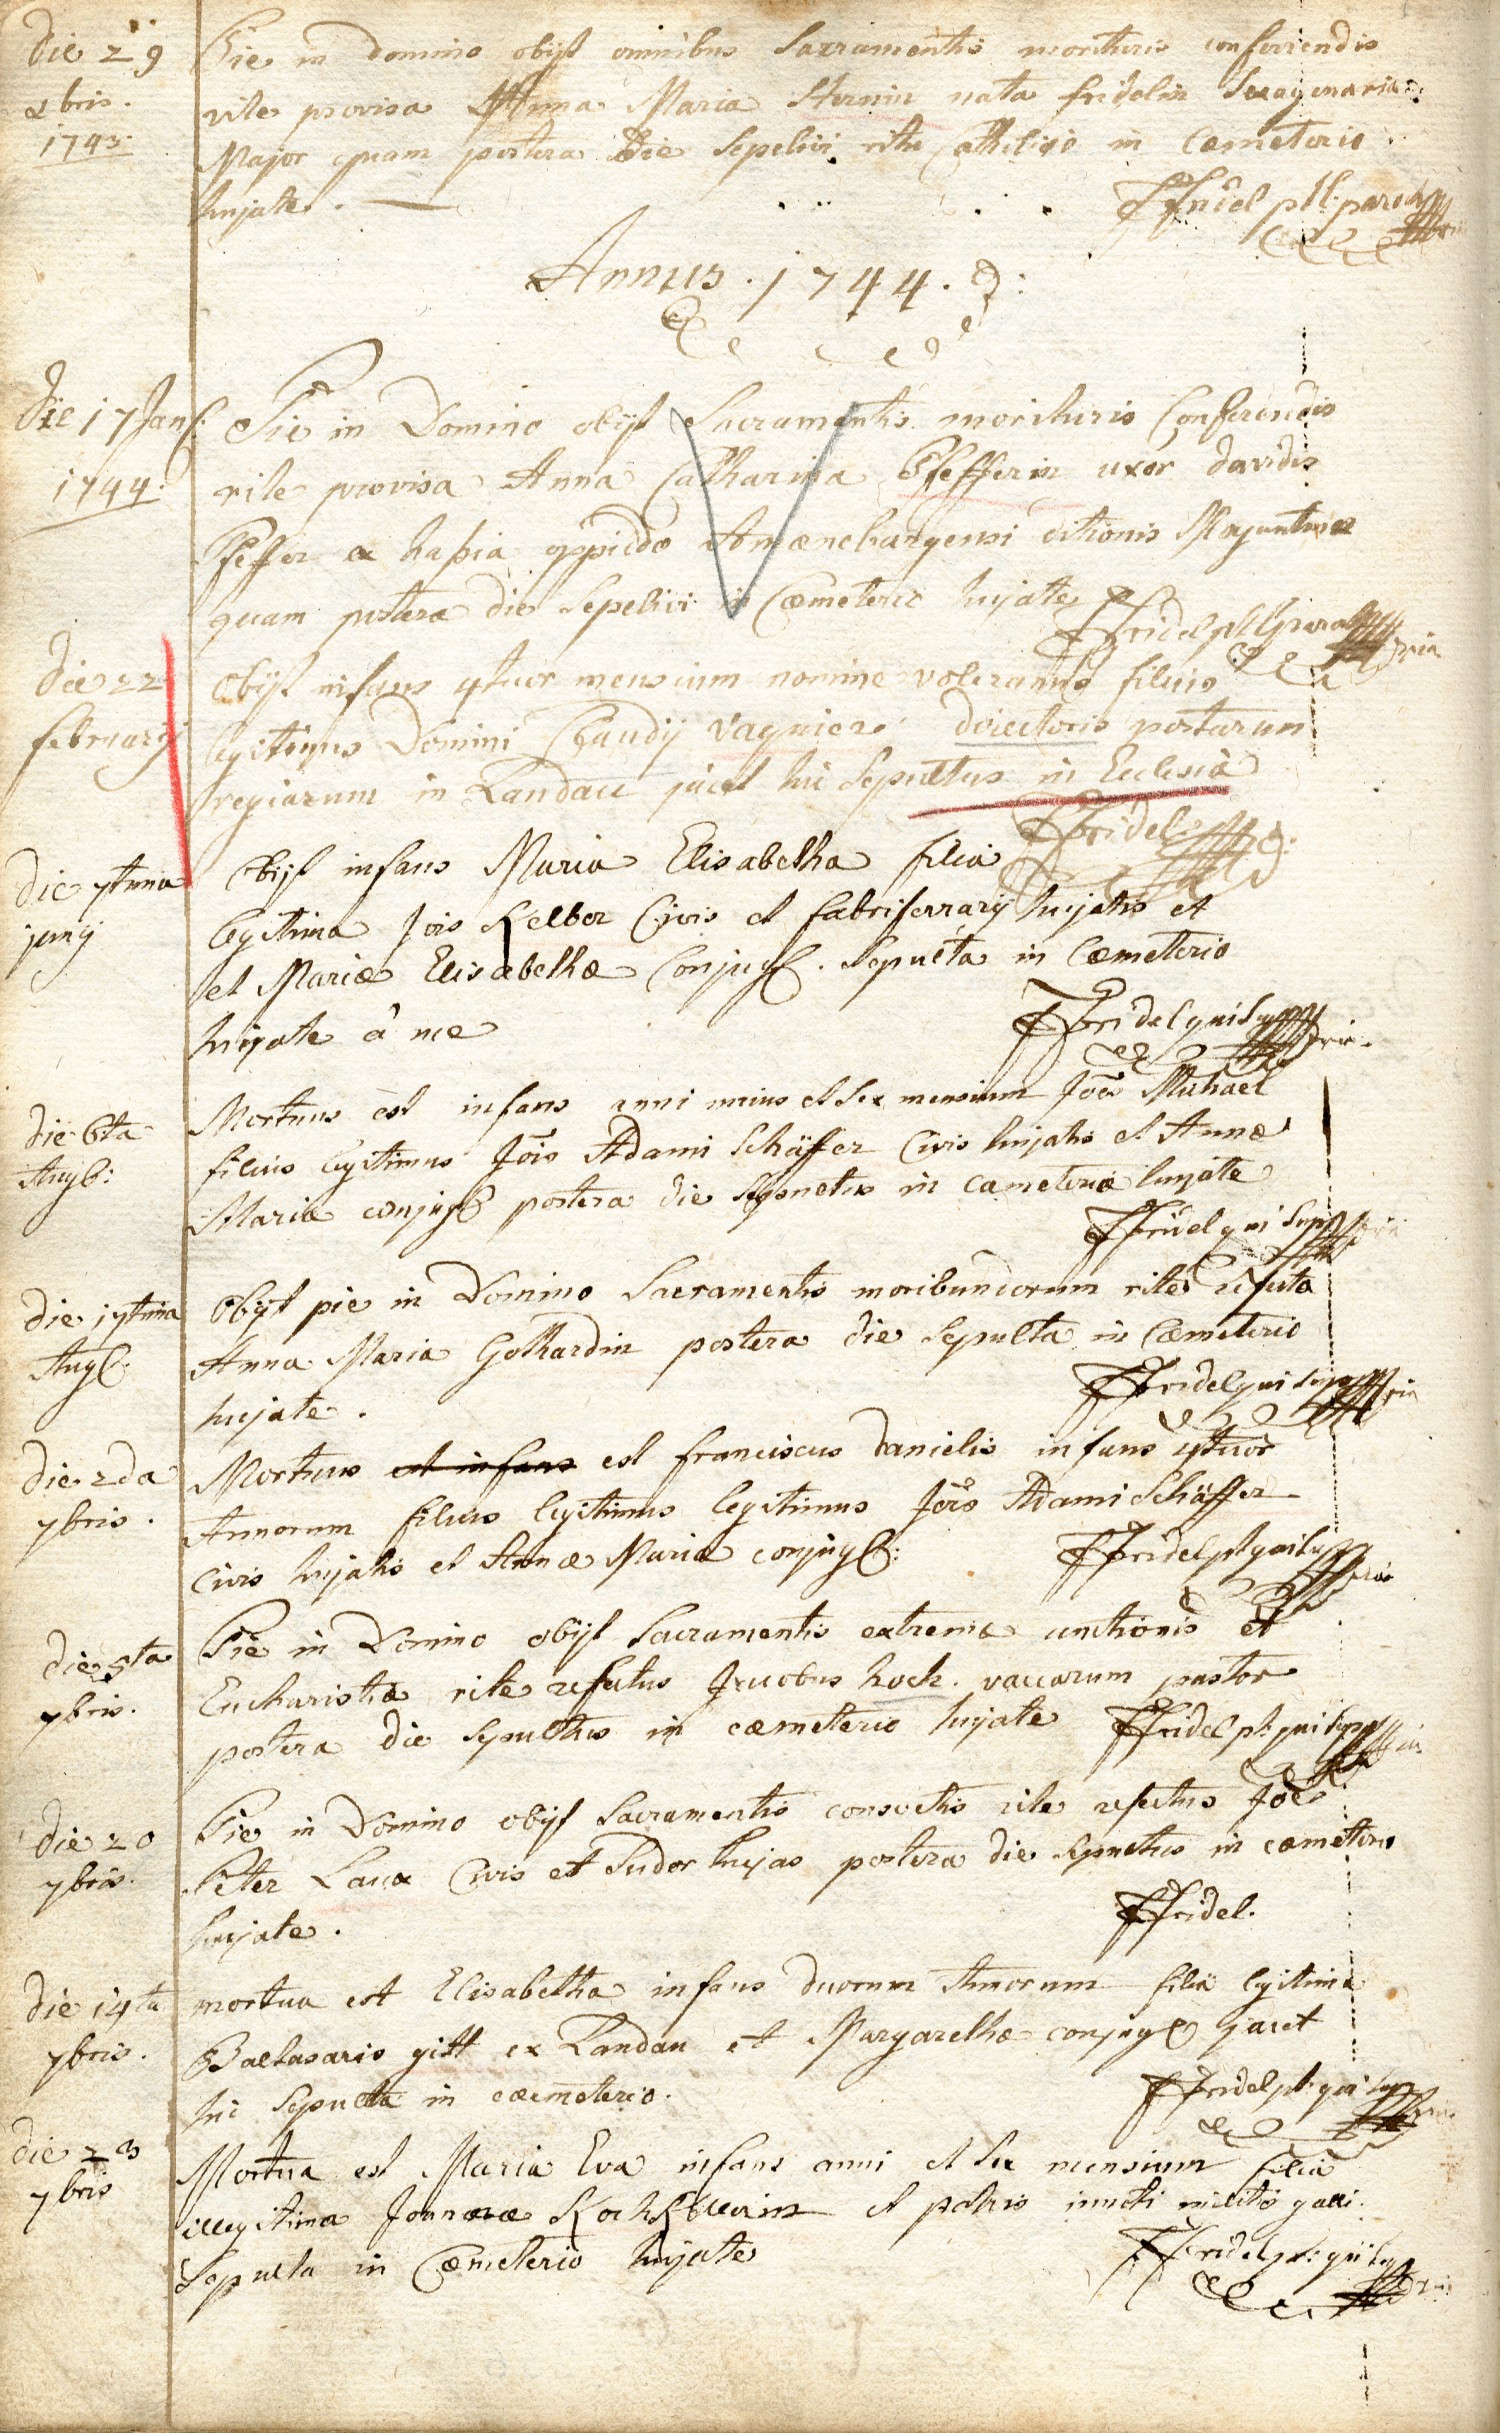 die 29
xbris.
1743.
Pie in domino obijt omnibus Sacramentis morituris conferendis
rite provisa Anna Maria Sternin nata fridelin Sexagenaria
Major quam postera die sepelivi ritu catholico in Cœmeterio
hujate.
FFridel pl: paroch
Annus . 1744 .
die 17 Jan:
1744.
Pie in Domino obijt Sacramentis morituris Conferendis
rite provisa Anna Catharina Pfefferin uxor davidis
Pfeffer ex haßia oppido Amœneburgensi ditionis Moguntinæ
quam postera die Sepelivi in Cœmeterio hujate
FFridel pl
die 22
februarij
Obijt infans 4tuor mensium nomine filius
legitimus Domini Claudij Vagniere directoris postarum
regiarum in Landau jacet hic Sepultus in Ecclesia
FFridel
die 7tima
junij
Obijt infans Maria Elisabetha filia
legitima Jois Kelber Civis et fabriferrarij hujatis et
et Mariæ Elisabethæ Conjug. Sepulta in Cœmeterio
hujate â me
FFridel qui sup
die 6ta
Aug:
Mortuus est infans anni unius et sex mensium Joes Michael
filius legitimus Jõis Adami Schäffer Civis hujatis et Annæ
Mariæ conjug postera die sepultus in cœmeterio hujate
FFridel qui sup
die 17tima
Aug.
Obijt pie in Domino Sacramentis moribundorum rite refecta
Anna Maria Gothardin postera die Sepulta in Cœmeterio
hujate .
FFridel qui sup
die 2da
7bris .
Mortuus est infans est franciscus danielis infans 4tuor
Annorum filius legitimus legitimus Jõis Adami Schäffer
civis hujatis et Annæ Mariæ conjug:
FFridel pl qui sup
die 5ta
7bris.
Pie in Domino obijt Sacramentis extremæ unctionis et
Eucharistiæ rite refectus Jacobus hoch. vaccarum pastor
postera die Sepultus in cœmeterio hujate
FFridel pl: qui sup
die 20
7bris.
Pie in Domino obijt Sacramentis consuetis rite refectus Joes
Peter Laux Civis et Sudor hujas postera die Sepultus in cœmeterio
hujate .
FFridel.
die 14ta
7bris .
mortua est Elisabetha infans duorum Annorum filia legitima
Baltasaris gitt ex Landau et Margarethæ conjug jacet
hic Sepulta in cœemeterio.
FFridel pl: qui sup
die 23
7bris
Mortua est Maria Eva infans anni et sex mensium filia
illegitima et patris militis galli.
Sepulta in Cœmeterio hujate
FFridel pl: qui sup